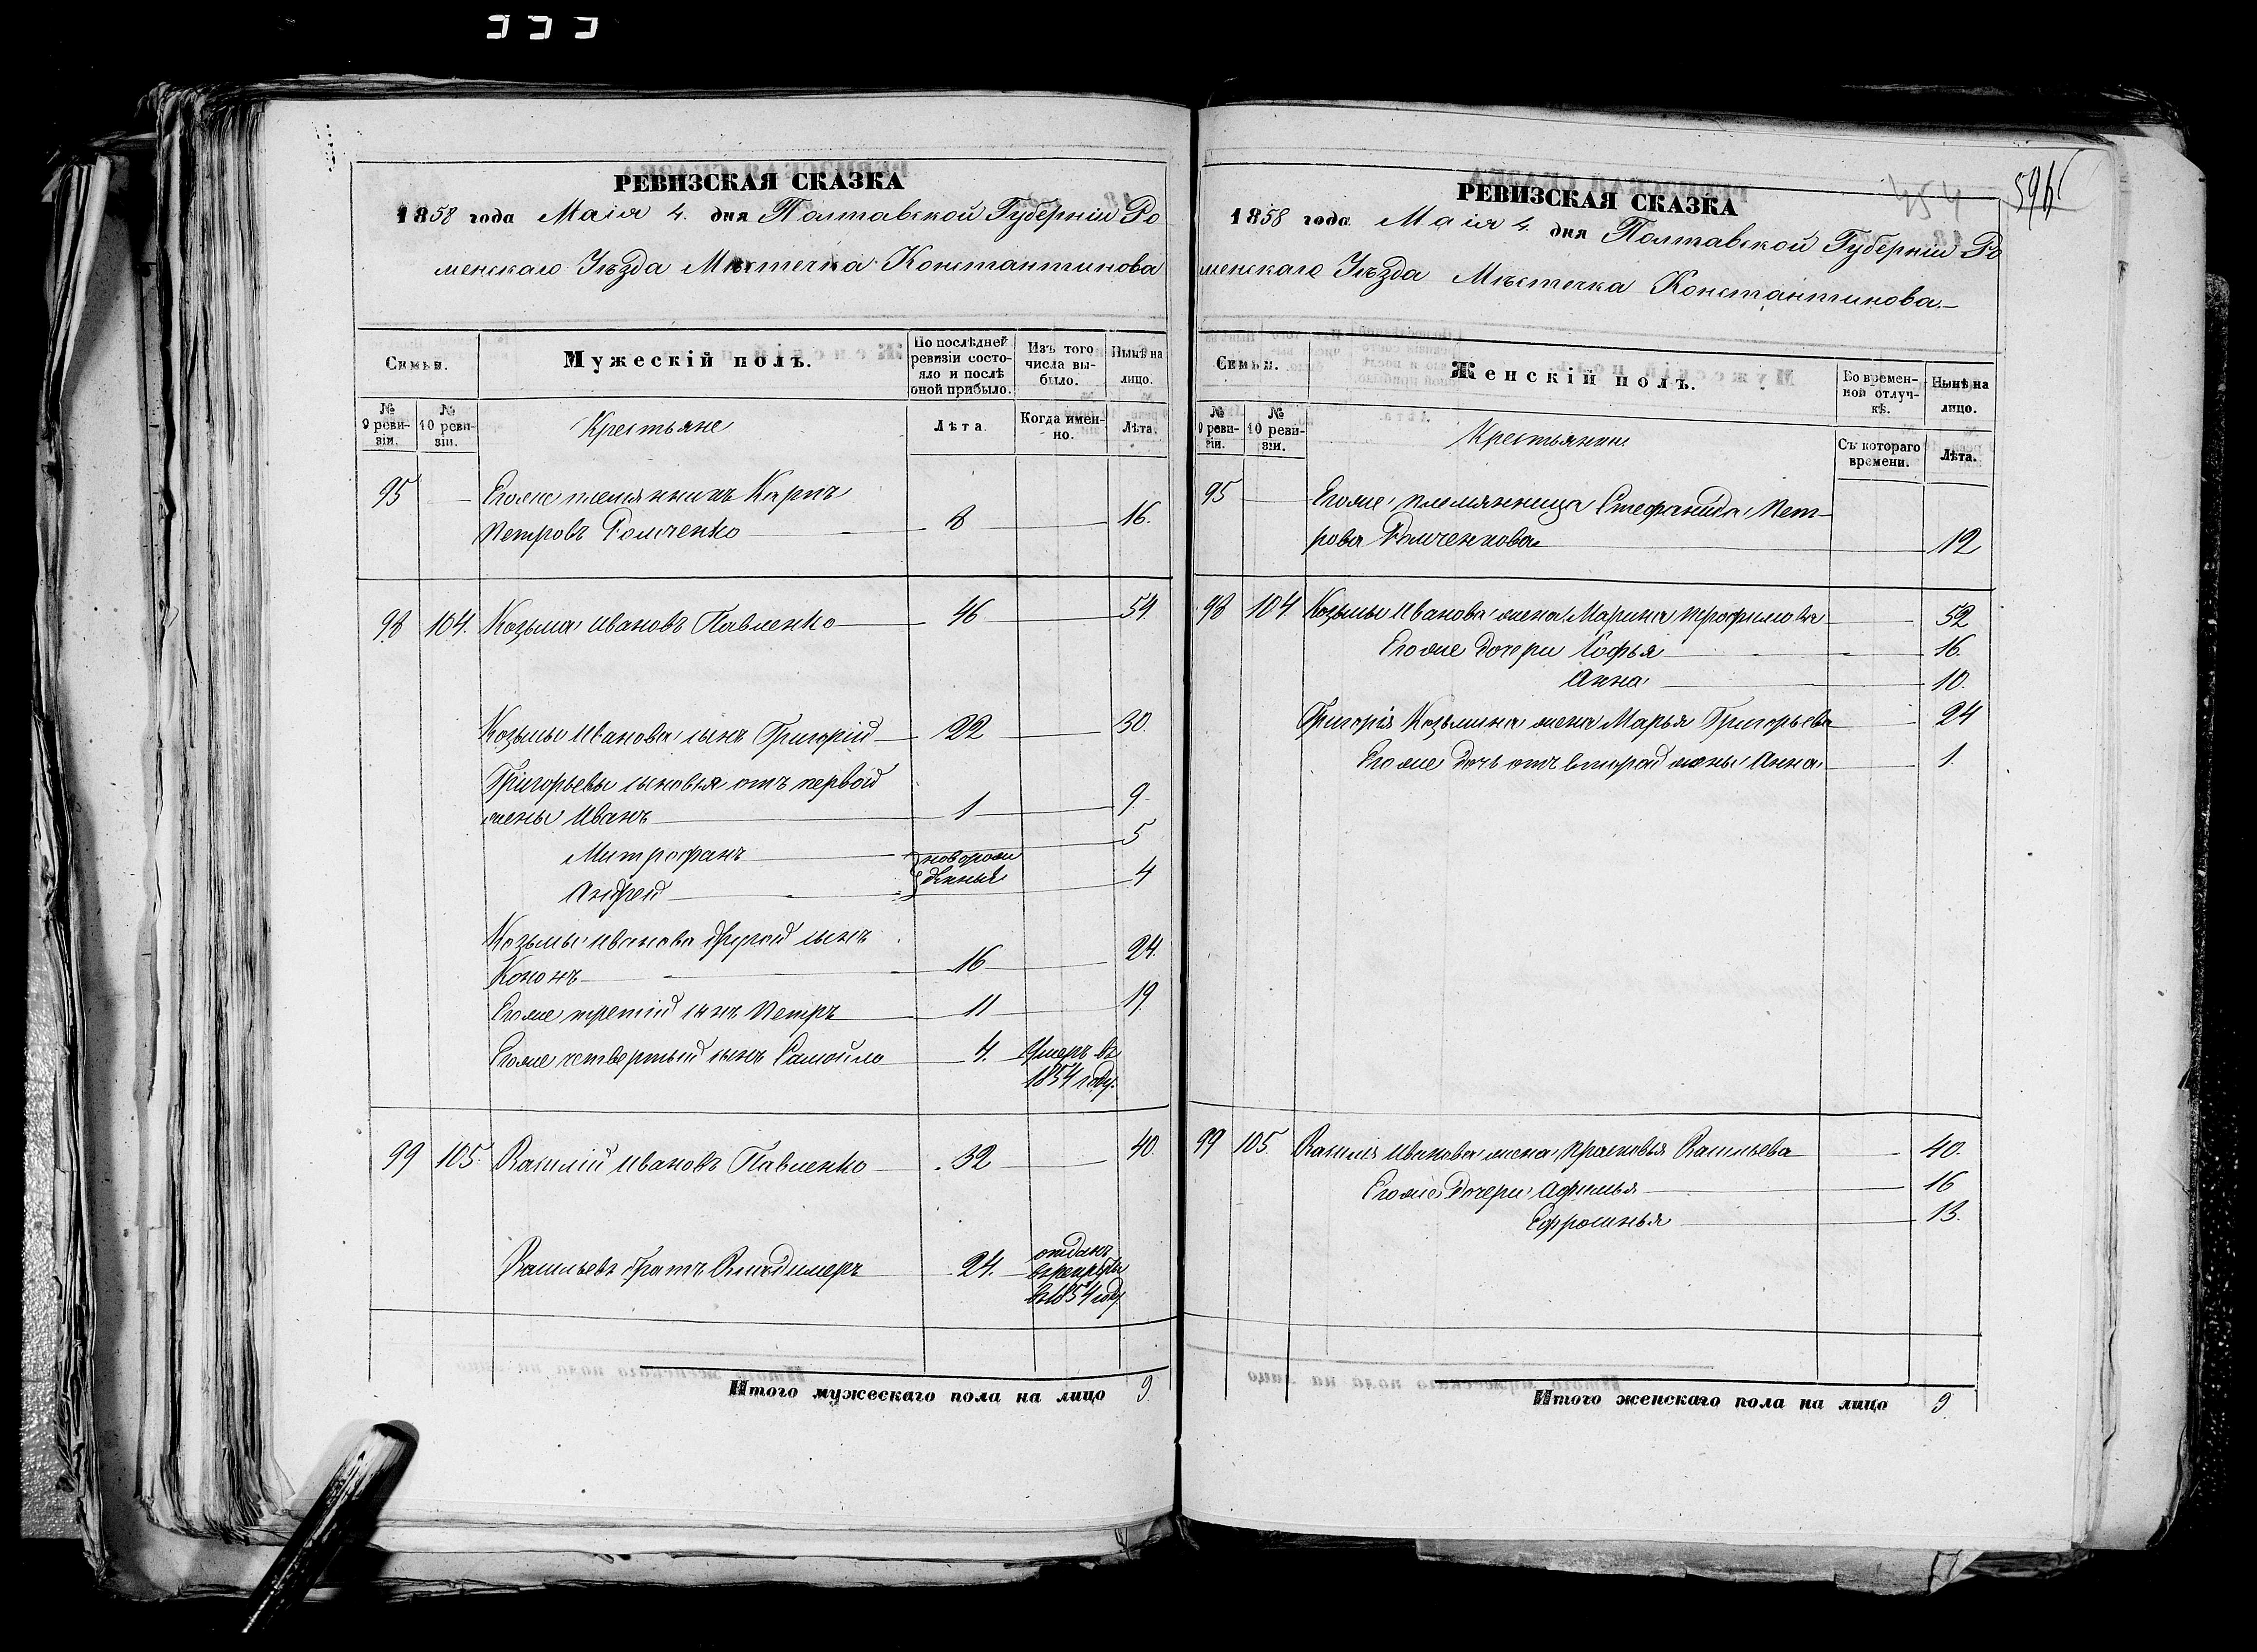 РЕВИЗСКАЯ СКАЗКА
1858 года Маія 4. дня Полтавской Губерніи Ро
менскаго Уѣзда Мѣстечка Константинова
Семьи.
Мужескій полъ.
По послѣдней ревизіи состояло и послѣ оной прибыло.
Изъ того числа выбыло.
Нынѣ на лицо.
№ 9 ревизіи.
№ 10 ревизіи.
Крестьяне
Лѣта
Когда именно.
Лѣта.
95 Егоже племянникъ Карпъ
Петровъ Ромченко 8 16.
98 104. Козьма Ивановъ Павленко 46 54.
Козьмы Иванова сынъ Григорій 22 30.
Григорьевы сыновья отъ первой
жены Иванъ 1 9.
Митрофанъ новорож 5
Андрей денные 4
Козьмы Иванова другой сынъ
Кононъ 16 24.
Егоже третій сынъ Петръ 11 19.
Егоже четвертый сынъ Самойло 4. Умеръ въ
1854 году.
99 105. Василій Ивановъ Павленко 32 40.
Васильевъ братъ Владимеръ 24. отданъ
въ рекруты
въ 1854 году
Итого мужескаго пола на лицо 9.
454
596
РЕВИЗСКАЯ СКАЗКА
1858 года Маія 4. дня Полтавской Губерніи Ро
менскаго Уѣзда Мѣстечка Константинова
Семьи.
Женскій полъ.
Во временной отлучкѣ.
Нынѣ на лицо.
№ 9 ревизіи.
№ 10 ревизіи.
Крестьянки
Съ котораго времени.
Лѣта.
95 Егоже племянница Стефанида Пет
рова Ромченкова 12
98 104 Козьмы Иванова жена Марина Трофимова 52
Егоже дочери Софья 16.
Анна 10.
Григорія Козьмина жена Марья Григорьева 24
Егоже дочь отъ второй жены Анна 1.
99 105. Василія Иванова жена Прасковья Васильева 40.
Егоже дочери Афимья 16
Ефросинья 13.
Итого женскаго пола на лицо 9.